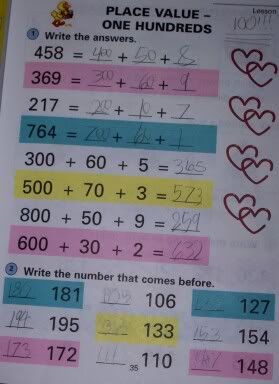 Lesson
PLACE VALUE –
ONE HUNDREDS
100!!!
1 Write the answers.
458 = 400 + 50 + 8
369 = 300 + 60 + 9
217 = 200 + 10 + 7
764 = 700 + 60 +
300 + 60 + 5 = 365
500 + 70 + 3 = 573
800 + 50 + 9 = 859
600 + 30 + 2 = 632
2 Write the number that comes before.
181 106 127
194 195 133 153 154
173 172 111 110 148
35